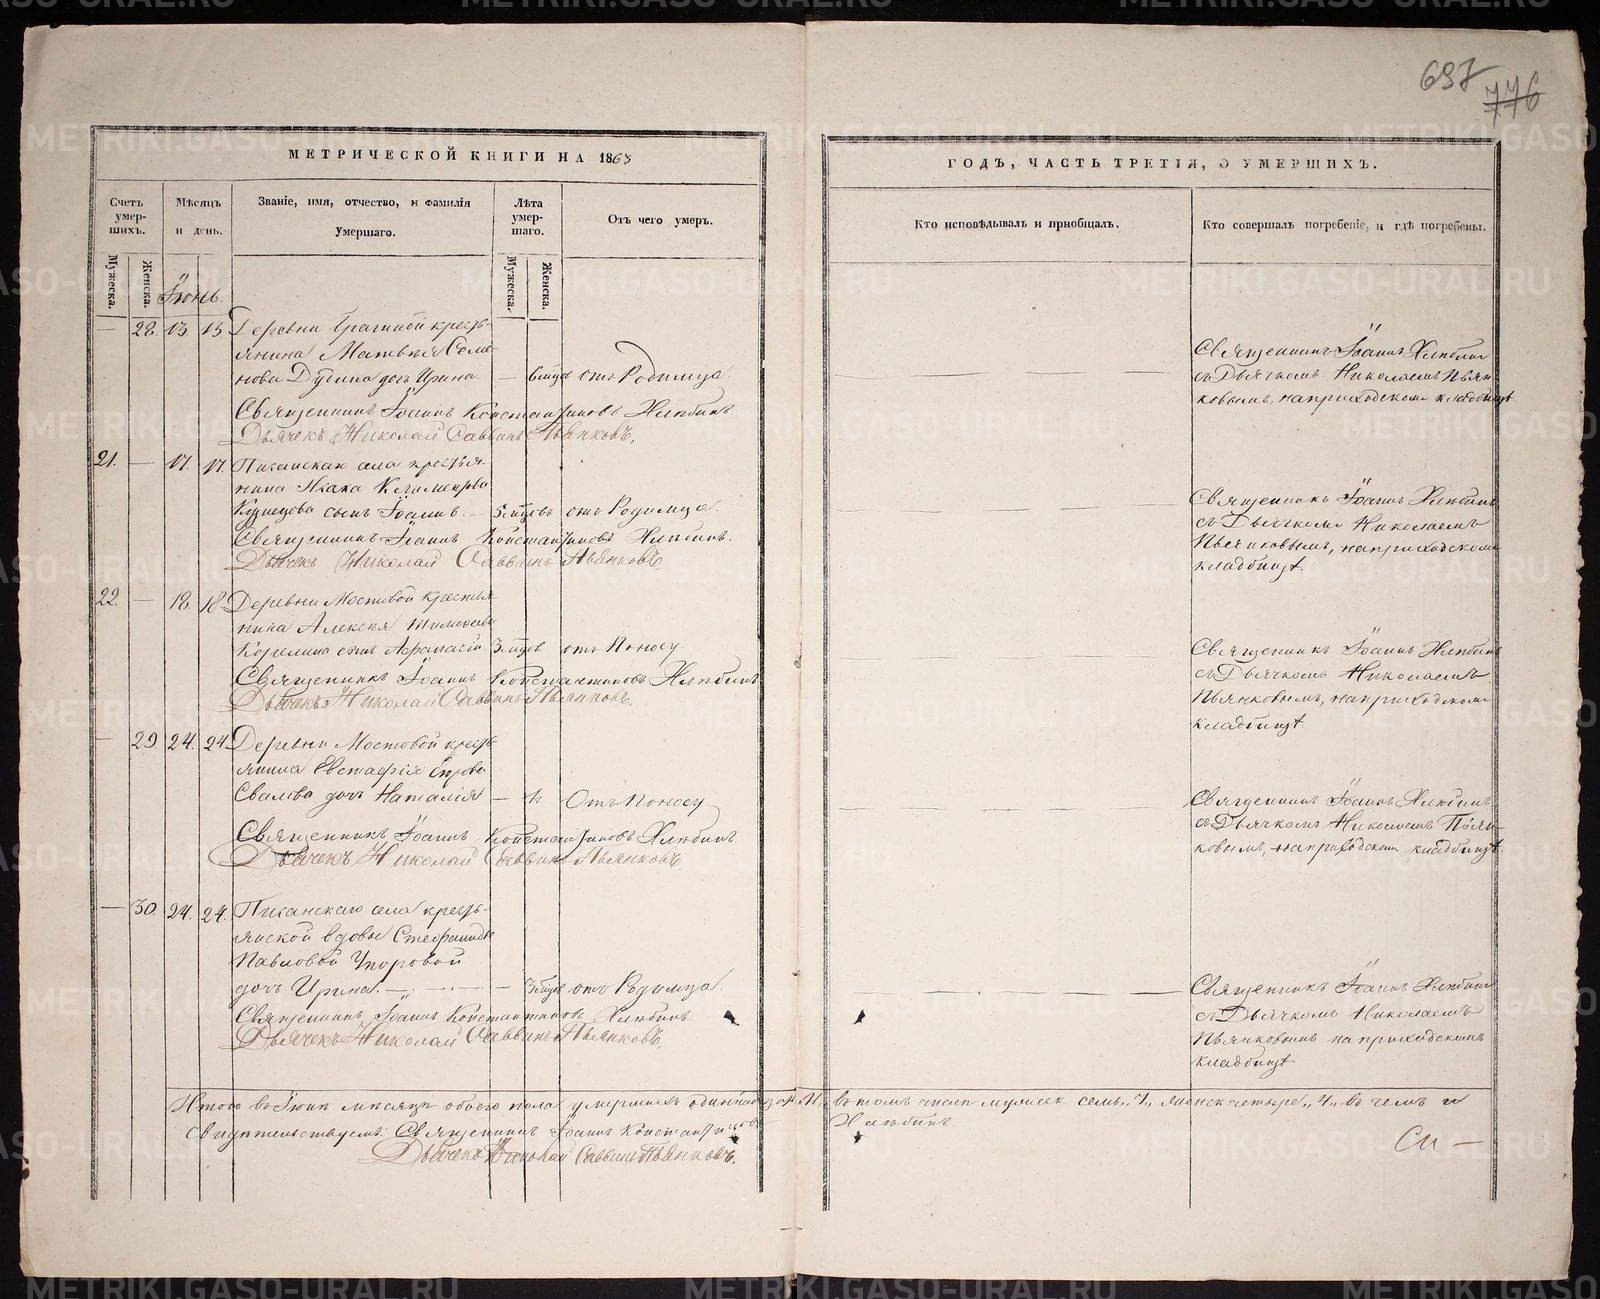 697
776
МЕТРИЧЕСКОЙ КНИГИ НА 1863
ГОДЪ, ЧАСТЬ ТРЕТІЯ, О УМЕРШИХЪ.
Счетъ умер-шихъ.
Мѣсяцъ и день.
Званіе, имя, отчество, и фамилія Умершаго.
Лѣта умер-шаго.
Отъ чего умеръ.
Кто исповѣдывалъ и пріобщалъ.
Кто совершалъ погребеніе, и гдѣ погребены.
Мужеска.
Женска.
Мужеска.
Женска.
Іюнь.
— 28. 13. 13. Деревни кресть-
янина Матвѣя Семе-
нова Дубина дочь Ирина. — 6 мѣцъ отъ Родимца
Священникъ Іоаннъ Константиновъ Хлѣбинъ.
Дьячекъ Николай Саввинъ Пьянковъ.
Священникъ Іоаннъ Хлѣбинъ
съ Дьячкомъ Николаемъ Пьян-
ковымъ, на приходскомъ кладбищѣ.
21. — 17. 17. села крестья-
нина
Кузнецова сынъ Іоаннъ. — 5 мѣцовъ отъ Родимца.
Священникъ Іоаннъ Константиновъ Хлѣбинъ.
Дьячекъ Николай Саввинъ Пьянковъ.
Священникъ Іоаннъ Хлѣбинъ
съ Дьячкомъ Николаемъ
Пьянковымъ, на приходскомъ
кладбищѣ.
22. — 18. 18. Деревни Мостовой крестья
нина Алексѣя
Корелина сынъ Афанасій 3 мѣцов отъ Поносу
Священникъ Іоаннъ Константиновъ Хлѣбинъ
Дьячекъ Николай Саввинъ Пьянковъ.
Священникъ Іоаннъ Хлѣбинъ
съ Дьячкомъ Николаемъ
Пьянковымъ, на приходскомъ
кладбищѣ.
— 29 24. 24. Деревни Мостовой кресть
янина Евстафія
Свалова дочь Наталія — Отъ Поносу
Священникъ Іоаннъ Константиновъ Хлѣбинъ
Дьячекъ Николай Саввинъ Пьянковъ.
Священникъ Іоаннъ Хлѣбинъ
съ Дьячкомъ Николаемъ Пьян-
ковымъ, на приходскомъ кладбищѣ.
— 30. 24. 24. села кресть-
янской вдовы Стефаниды
Павловой Упоровой
дочь Ирина. — 3 мѣцов отъ Родимца.
Священникъ Іоаннъ Константиновъ Хлѣбинъ.
Дьячекъ Николай Саввинъ Пьянковъ.
Священникъ Іоаннъ Хлѣбинъ
съ Дьячкомъ Николаемъ
Пьянковымъ на приходскомъ
кладбищѣ
Итого въ Іюнѣ мѣсяцѣ обоего пола умершихъ одинадцать 11. въ томъ числѣ мужеск семь „7„ женск четыре „4„ въ чемъ и
свидѣтельствуемъ: Священникъ Іоаннъ Константиновъ Хлѣбинъ.
Дьячекъ Николай Саввинъ Пьянковъ.
METRIKI.GASO-URAL.RU